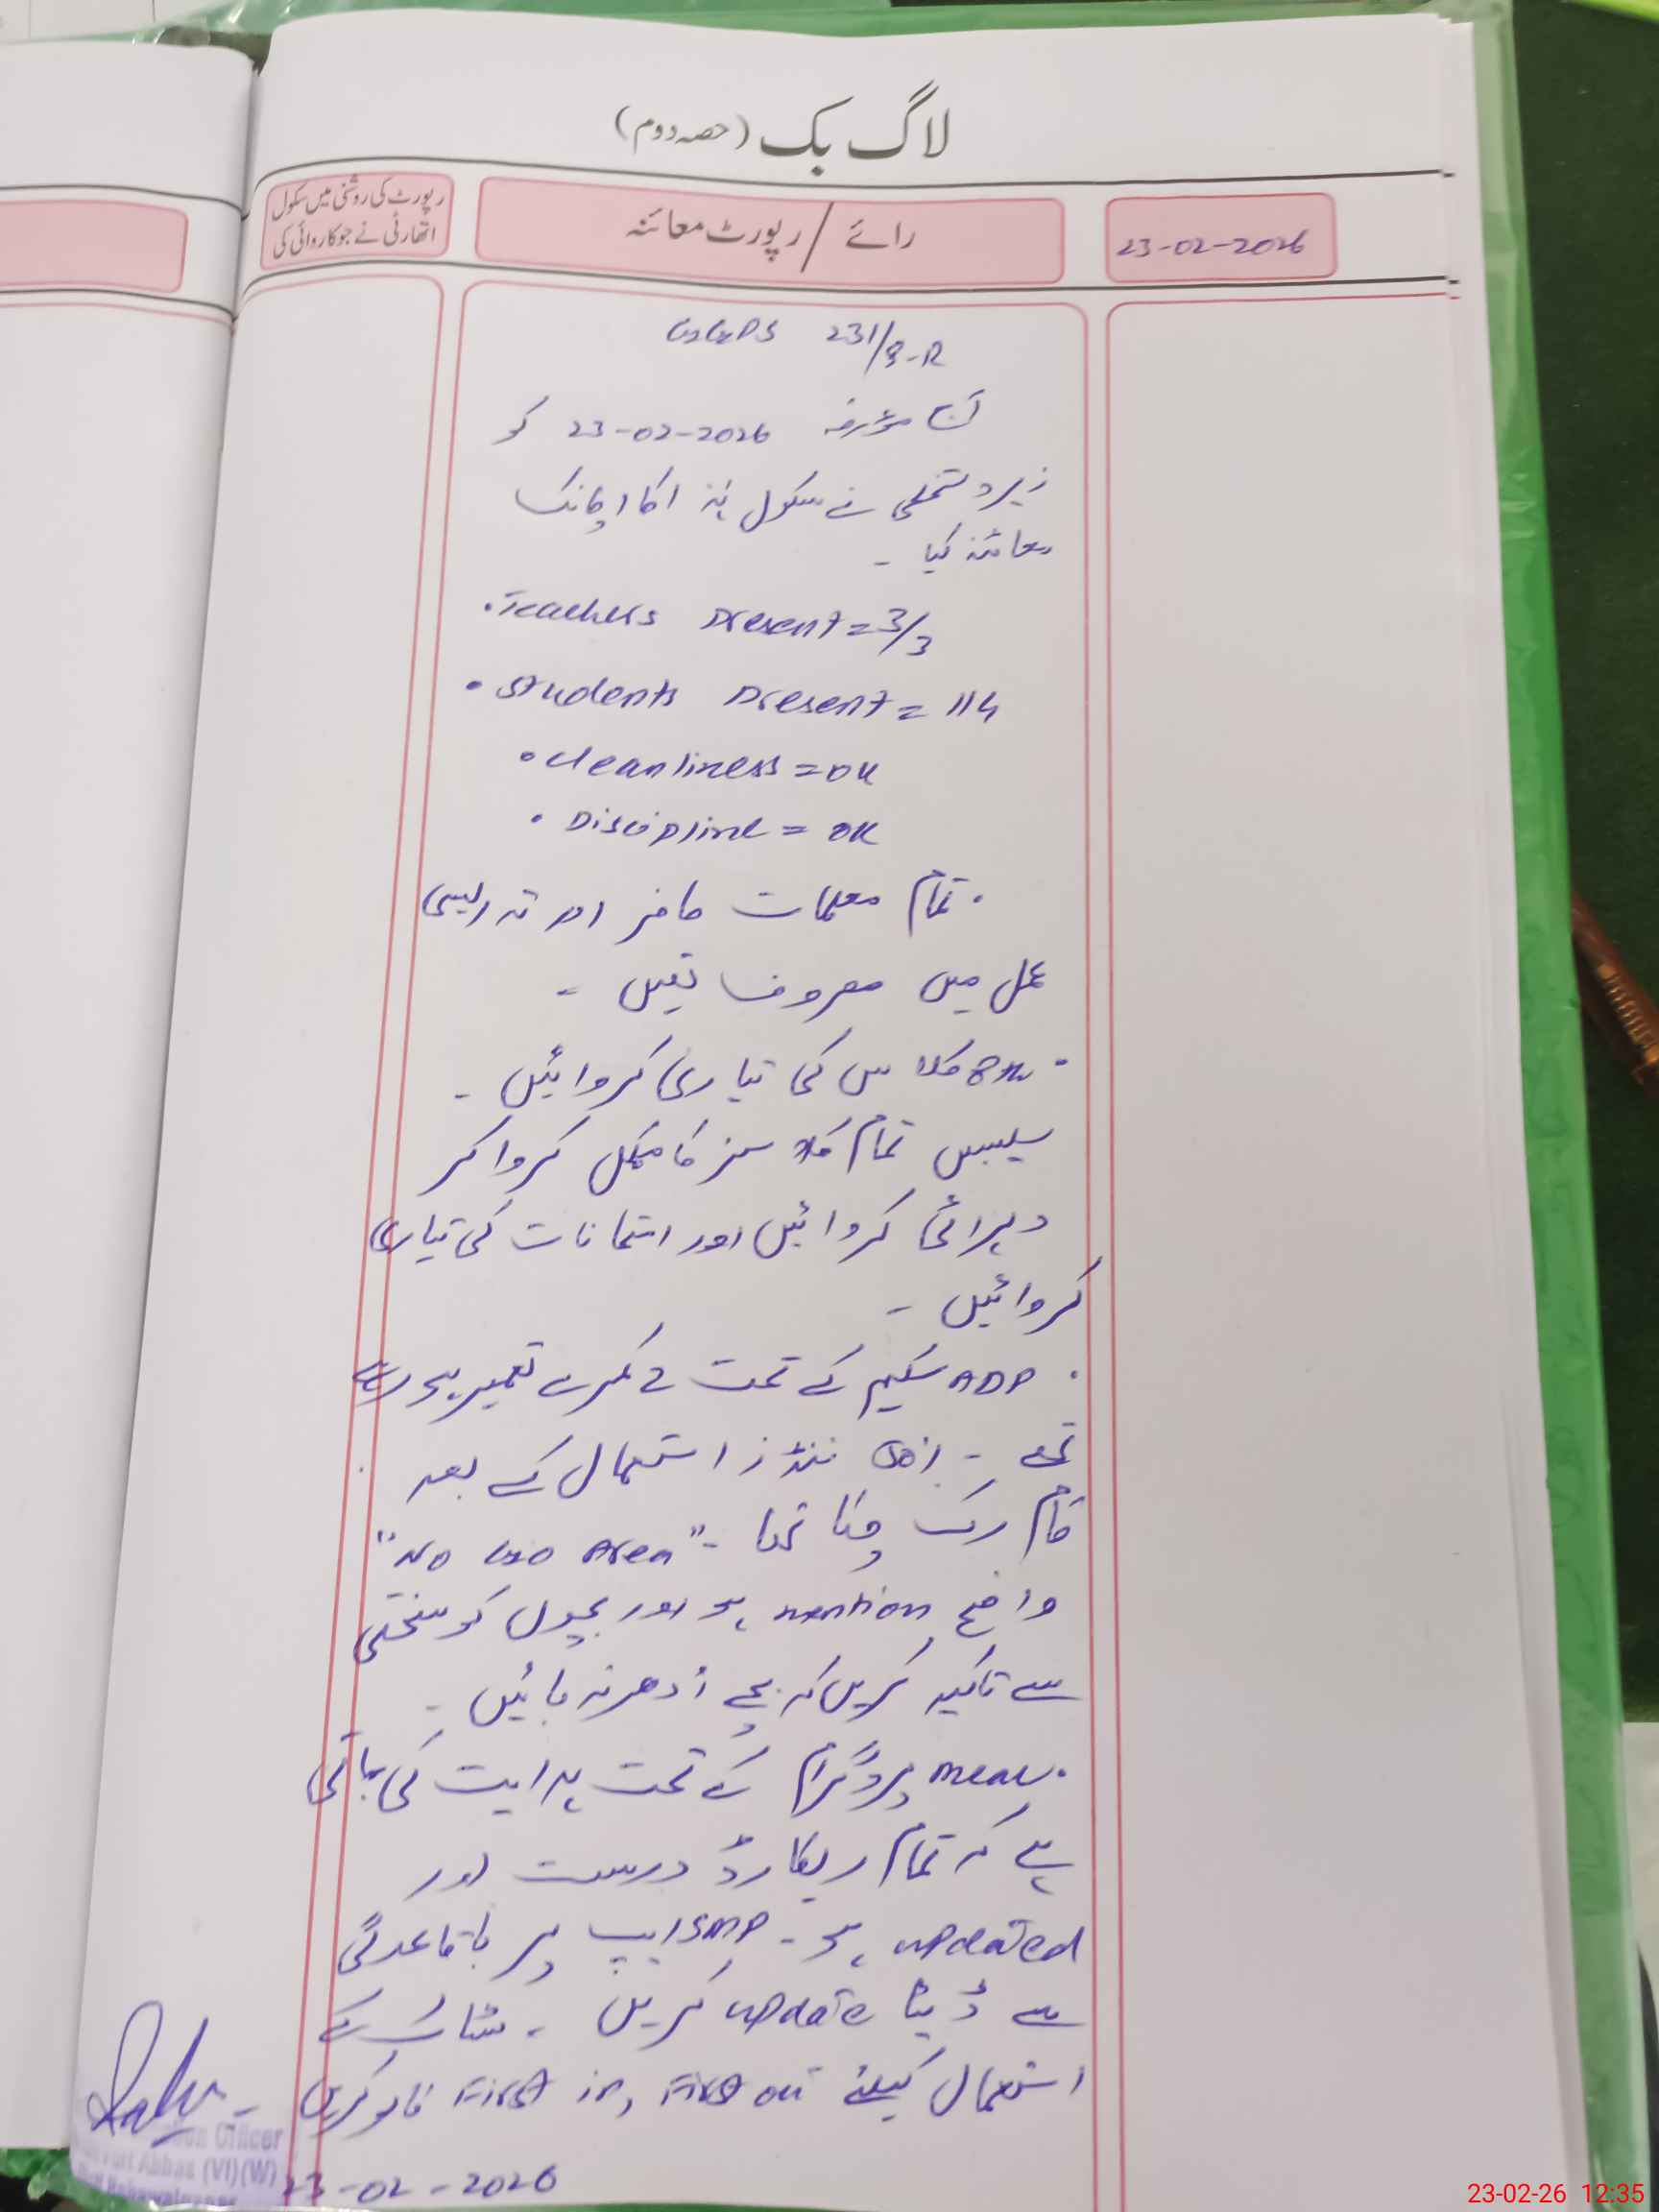 لاگ بک (حصہ دوم)
23-02-2026
رائے / رپورٹ معائنہ
رپورٹ کی روشنی میں سکول
اتھارٹی نے جو کاروائی کی
GGPS 231/9-R
آج مؤرخہ 23-02-2026 کو
زیر دستخطی نے سکول ہذا کا اچانک
معائنہ کیا -
• Teachers Present = 3/3
• Students Present = 114
• Cleanliness = OK
• Discipline = OK
• تمام معلمات حاضر اور تدریسی
عمل میں مصروف تھیں -
• 8th کلاس کی تیاری کروائیں -
سلیبس تمام کلاسز کا مکمل کروا کر
دہرائی کروائیں اور امتحانات کی تیاری
کروائیں -
• ADP سکیم کے تحت 2 کمرے تعمیر ہو رہے
تھے - فنڈز استعمال کے بعد
کام رک چکا تھا - "No Go Area"
واضح mention ہو اور بچوں کو سختی
سے تاکید کریں کہ بچے اُدھر نہ جائیں -
• Meal پروگرام کے تحت ہدایت کی جاتی
ہے کہ تمام ریکارڈ درست اور
updated ہو - SMP ایپ پر باقاعدگی
سے ڈیٹا update کریں - سٹاک کے
استعمال کیلئے First in, First out فالو کریں -
Officer
Abbas (VI)(W)
23-02-2026
23-02-26 12:35